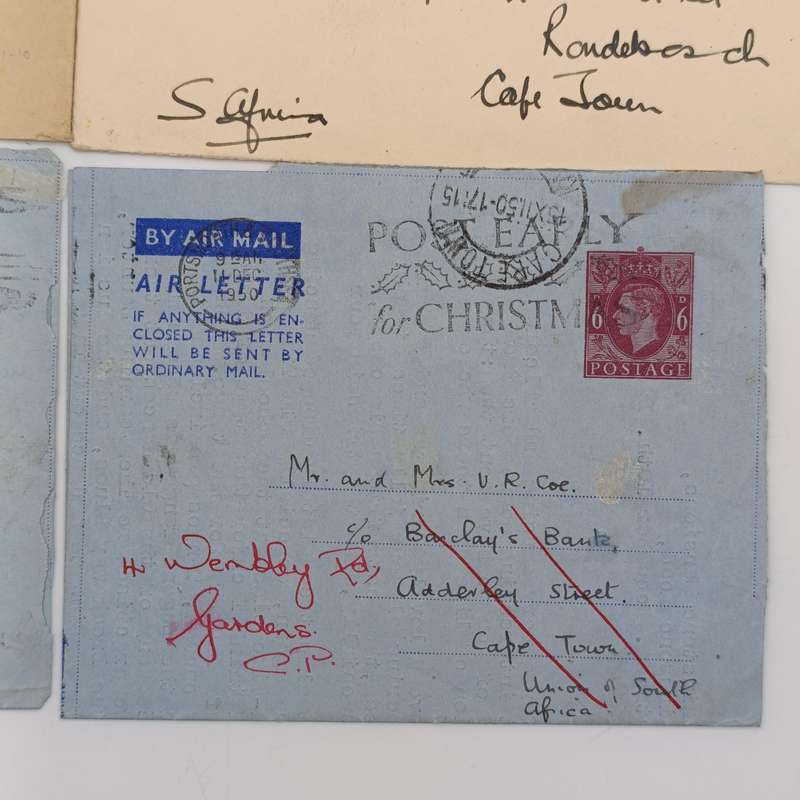 Rondebosch
Cape Town
S Africa
BY AIR MAIL
AIR LETTER
IF ANYTHING IS EN-
CLOSED THIS LETTER
WILL BE SENT BY
ORDINARY MAIL.
PORTSMOUTH
9 15 AM
11 DEC
1950
POST EARLY
for CHRISTM
CAPE TOWN
XII.50-17:15
6 D 6
POSTAGE
Mr. and Mrs. V. R. Coe.
c/o Barclay's Bank,
Adderley Street.
Cape Town
Union of South
Africa.
Wembley Rd,
Gardens.
C.P.